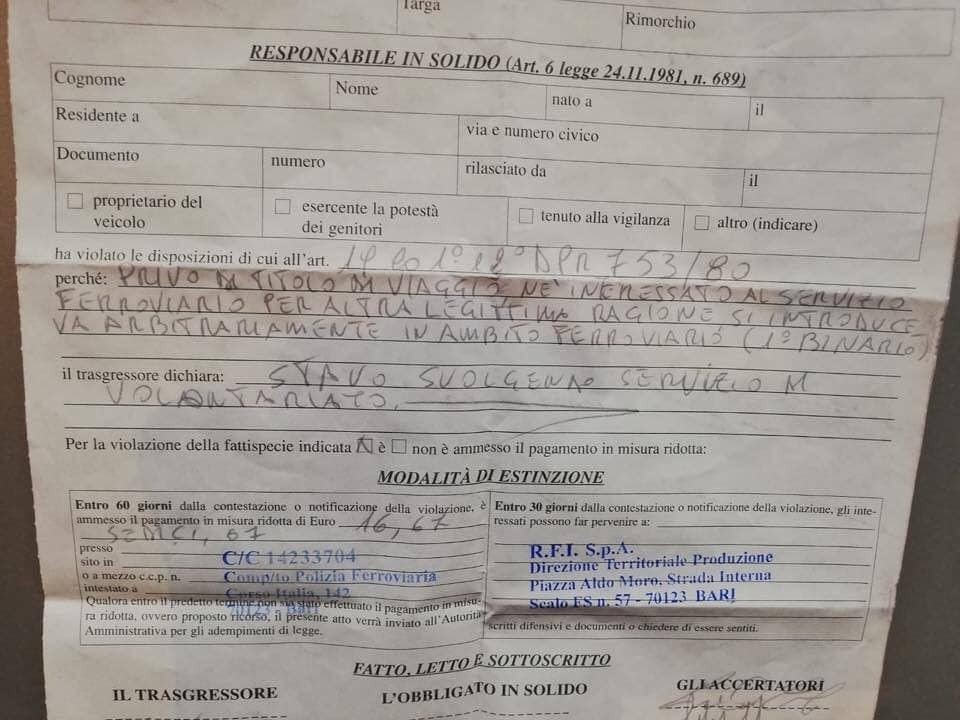 Targa
Rimorchio
RESPONSABILE IN SOLIDO (Art. 6 legge 24.11.1981, n. 689)
Cognome Nome nato a il
Residente a via e numero civico
Documento numero rilasciato da il
proprietario del veicolo
esercente la potestà dei genitori
tenuto alla vigilanza
altro (indicare)
ha violato le disposizioni di cui all'art. 19 co 1° e 2° DPR 753/80
perché: PRIVO DI TITOLO DI VIAGGIO NE' INERESSATO AL SERVIZIO
FERROVIARIO PER ALTRA LEGITTIMA RAGIONE SI INTRODUCE
VA ARBITRARIAMENTE IN AMBITO FERROVIARIO (1° BINARIO)
il trasgressore dichiara: STAVO SVOLGENDO SERVIZIO DI
VOLONTARIATO.
Per la violazione della fattispecie indicata è non è ammesso il pagamento in misura ridotta:
MODALITÀ DI ESTINZIONE
Entro 60 giorni dalla contestazione o notificazione della violazione, è
ammesso il pagamento in misura ridotta di Euro 16,67
SEDICI,67
presso
sito in C/C 14233704
o a mezzo c.c.p. n. Comp/to Polizia Ferroviaria
intestato a Corso Italia, 142
70123 Bari
Qualora entro il predetto termine non sia stato effettuato il pagamento in misu-
ra ridotta, ovvero proposto ricorso, il presente atto verrà inviato all'Autorità
Amministrativa per gli adempimenti di legge.
Entro 30 giorni dalla contestazione o notificazione della violazione, gli inte-
ressati possono far pervenire a:
R.F.I. S.p.A.
Direzione Territoriale Produzione
Piazza Aldo Moro, Strada Interna
Scalo FS n. 57 - 70123 BARI
scritti difensivi e documenti o chiedere di essere sentiti.
FATTO, LETTO E SOTTOSCRITTO
IL TRASGRESSORE L'OBBLIGATO IN SOLIDO GLI ACCERTATORI